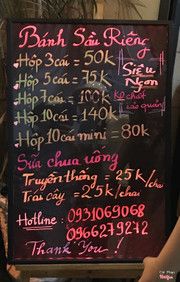 Bánh Sầu Riêng
Hộp 3 cái = 50k
Hộp 5 cái = 75k
Hộp 7 cái = 100k
Hộp 10 cái = 140k
Hộp 10 cái mini = 80k
Siêu
Ngon
K0 chất
bảo quản
Sữa chua uống
Truyền thống = 25k/chai
Trái cây = 25k/chai
Hotline: 0931069068
0966279272
Thank You!